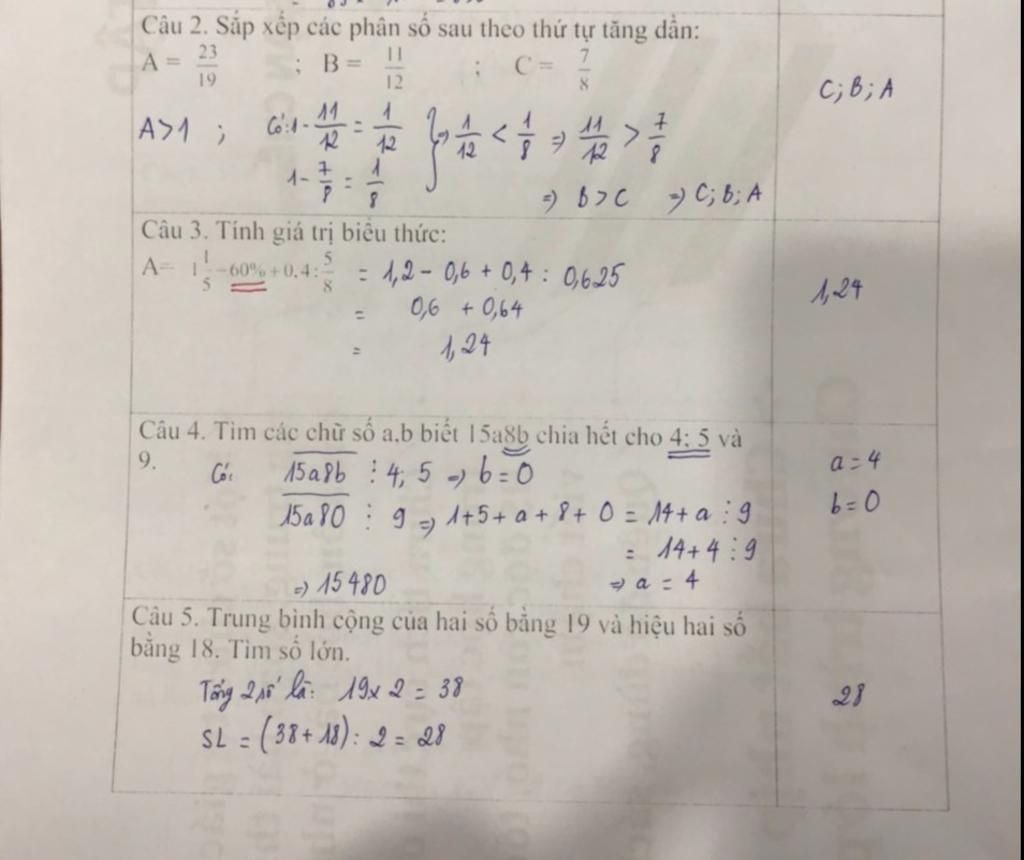 Câu 2. Sắp xếp các phân số sau theo thứ tự tăng dần:
A = 23/19 ; B = 11/12 ; C = 7/8
C; B; A
A>1 ; Có: 1 - 11/12 = 1/12 } => 1/12 < 1/8 => 11/12 > 7/8
1 - 7/8 = 1/8
=> B > C => C; B; A
Câu 3. Tính giá trị biểu thức:
A= 1 1/5 - 60% + 0,4 : 5/8 = 1,2 - 0,6 + 0,4 : 0,625
1,24
= 0,6 + 0,64
= 1,24
Câu 4. Tìm các chữ số a.b biết 15a8b chia hết cho 4; 5 và
9.
Có: 15a8b ⋮ 4; 5 => b = 0
a = 4
b = 0
15a80 ⋮ 9 => 1+5+a+8+0 = 14+a ⋮ 9
= 14+4 ⋮ 9
=> 15480 => a = 4
Câu 5. Trung bình cộng của hai số bằng 19 và hiệu hai số
bằng 18. Tìm số lớn.
Tổng 2 số là: 19 x 2 = 38
28
SL = (38 + 18) : 2 = 28